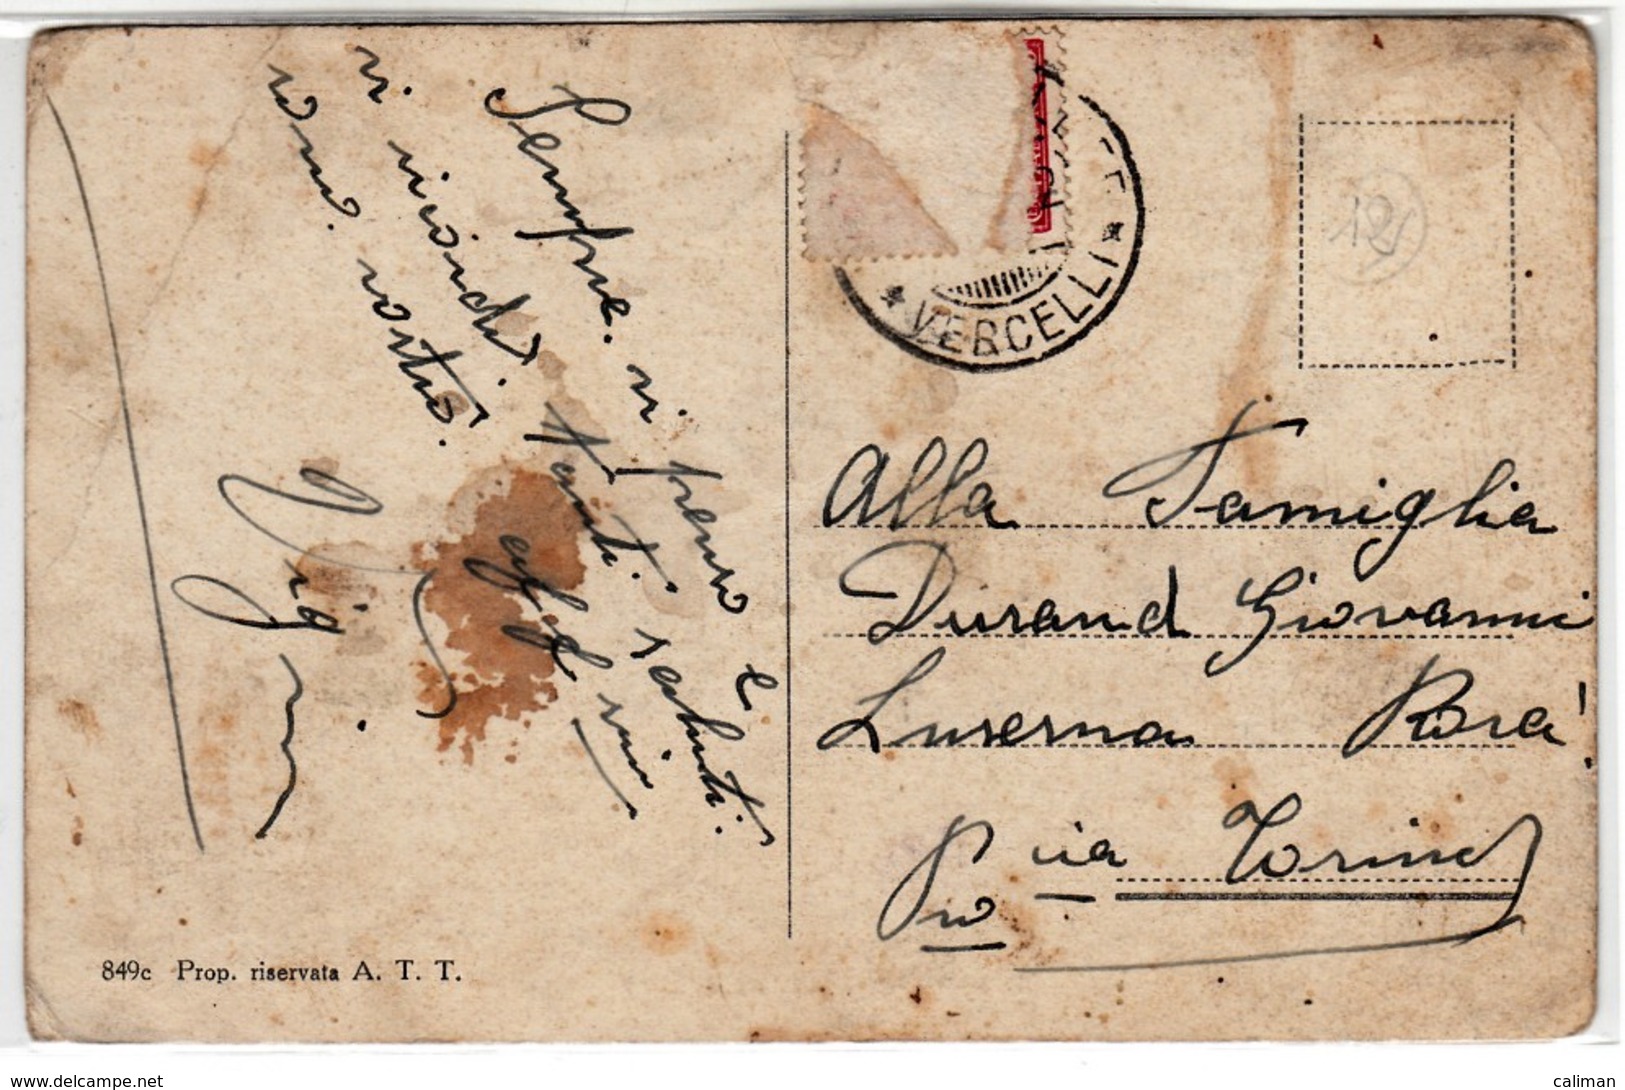 Sempre. vi penso e
vi ricordi. tanti. saluti.
sono. vostro. affmo
Gigi
VERCELLI
181
Alla Famiglia
Durand Giovanni
Luserna Rorà!
Pro cia Torino
849c Prop. riservata A. T. T.
www.delcampe.net
caliman